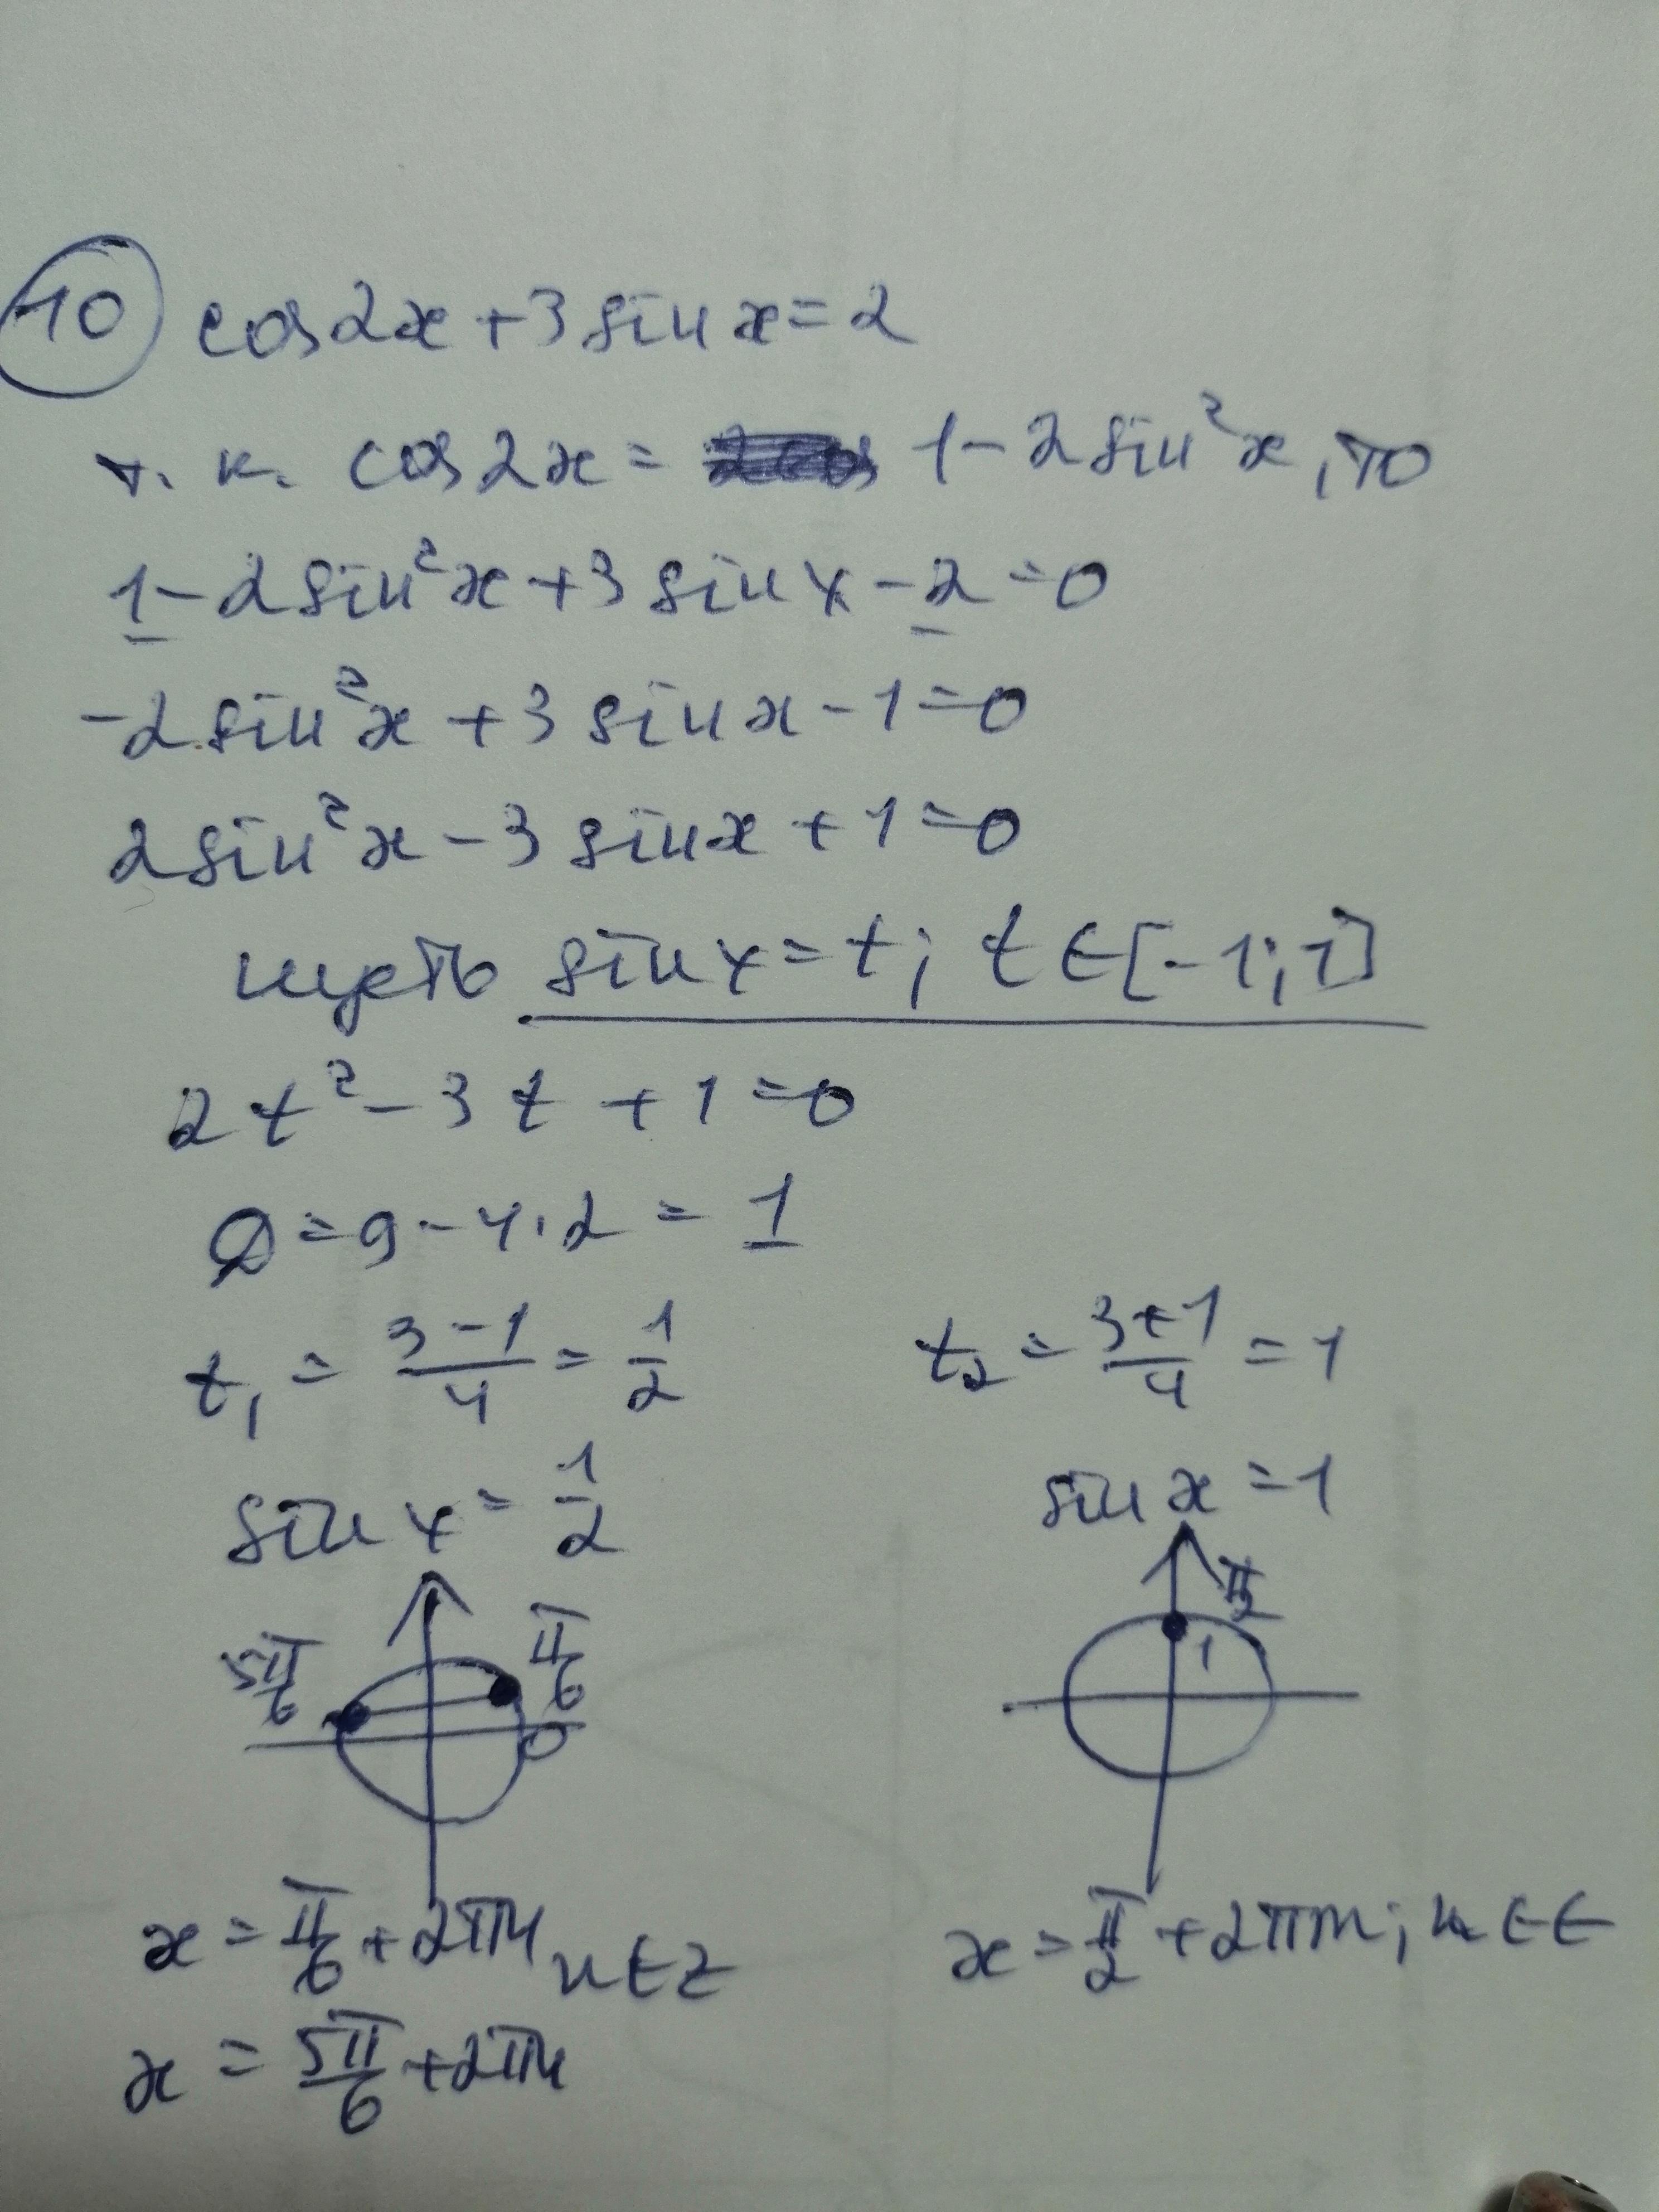 10 cos2x+3sinx=2
т.к. cos2x= 1-2sin²x, то
1-2sin²x+3sinx-2=0
-2sin²x+3sinx-1=0
2sin²x-3sinx+1=0
пусть sinx=t; t∈[-1;1]
2t²-3t+1=0
D=9-4·2=1
t₁=(3-1)/4=1/2 t₂=(3+1)/4=1
sinx=1/2 sinx=1
5π/6 π/6 0
π/2 1
x=π/6+2πn n∈Z x=π/2+2πn; n∈
x=5π/6+2πn